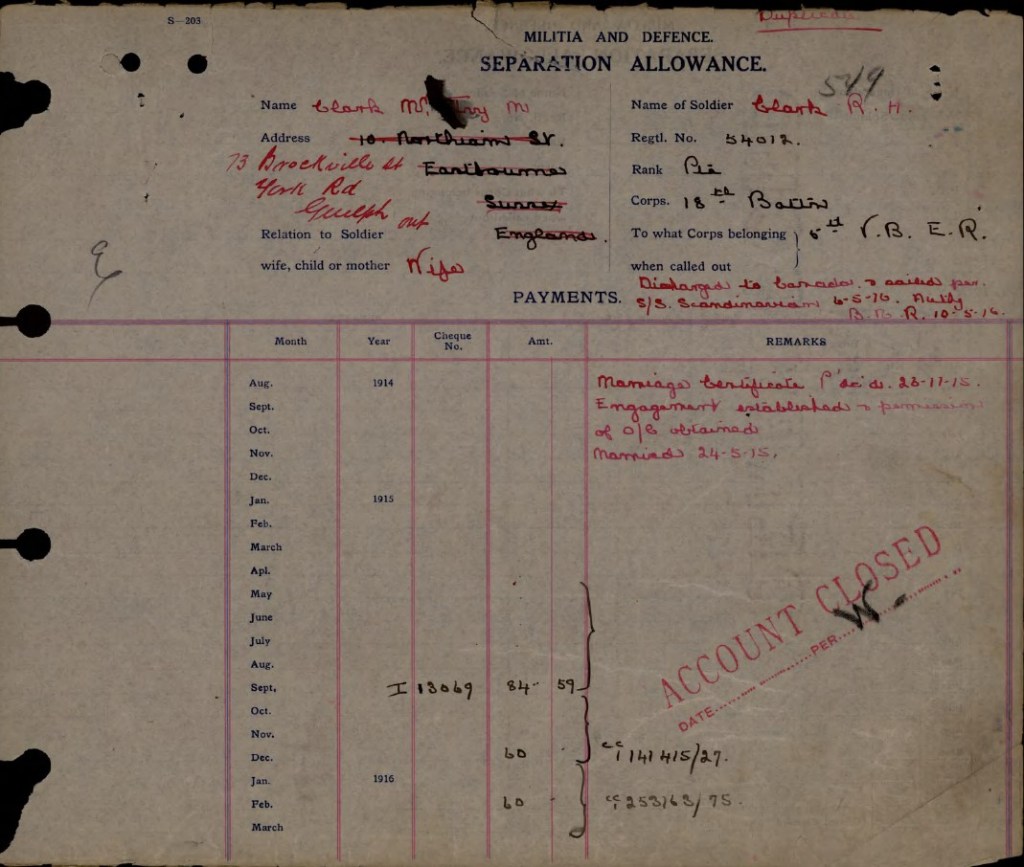 S—203
Duplicate
MILITIA AND DEFENCE.
SEPARATION ALLOWANCE.
549
Name Clark Mrs Ivy M
Name of Soldier Clark R. H.
Address 10 Northiam St.
Regtl. No. 54012.
73 Brockville St Eastbourne
Rank Pte
York Rd Surrey
Corps. 18th Battn
Guelph Ont
Relation to Soldier England.
To what Corps belonging 5th V.B. E.R.
wife, child or mother Wife
when called out
Discharged to Canada & sailed per.
PAYMENTS. S/S. Scandinavian 6-5-16. Authy
R. 10-5-16.
Month Year Cheque No. Amt. REMARKS
Aug. 1914 Marriage Certificate rec'd. 23-11-15.
Sept. Engagement established & permission
Oct. of O/C obtained
Nov. Married 24-5-15.
Dec.
Jan. 1915
Feb.
March
Apl.
May
June
July
Aug.
Sept. I 13069 84- 59
Oct.
Nov.
Dec. 60 - 141415/27.
Jan. 1916
Feb. 60 - 253763/75.
March
ACCOUNT CLOSED
DATE PER W-